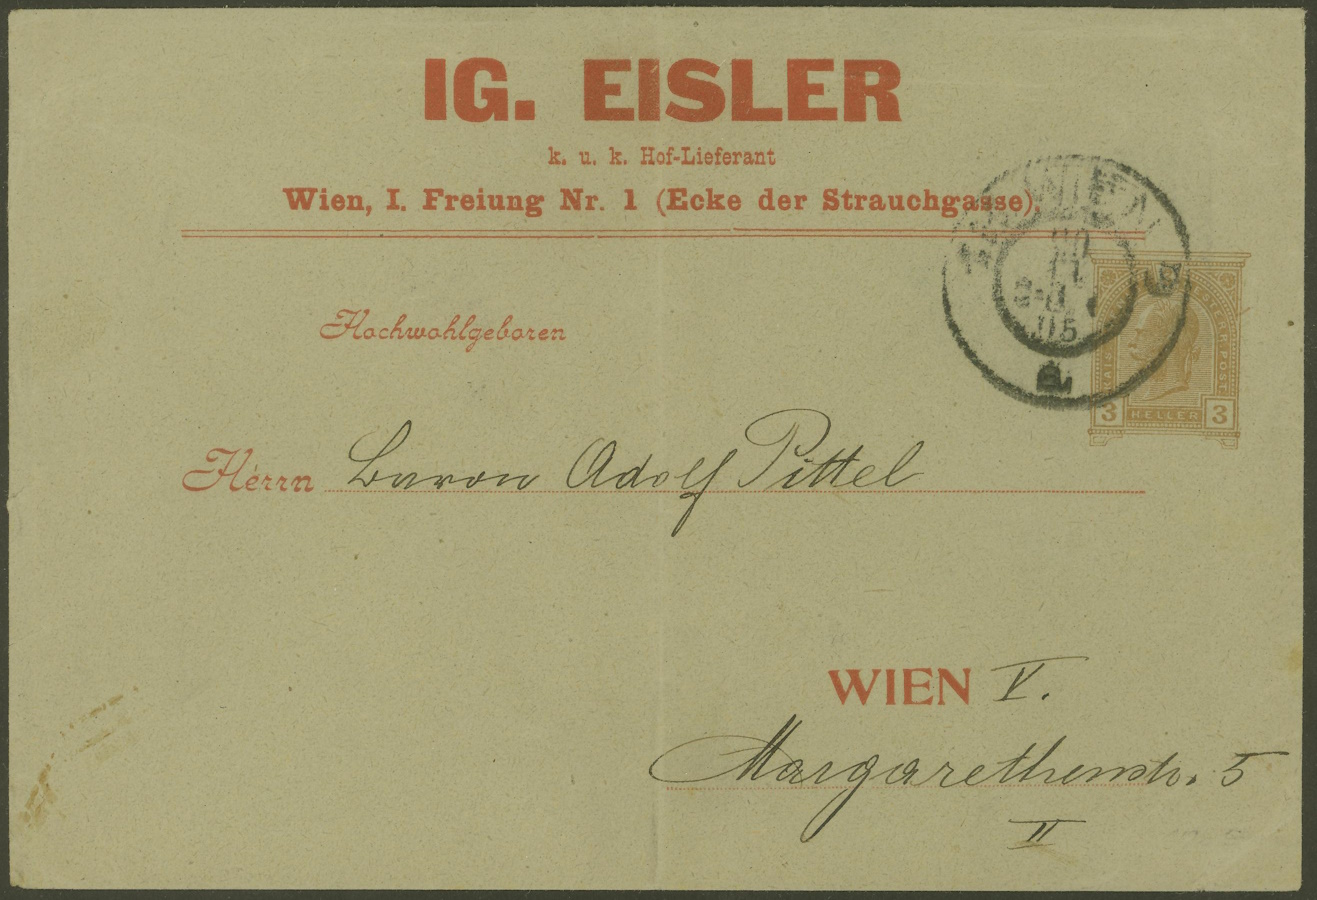 IG. EISLER
k. u. k. Hof-Lieferant
Wien, I. Freiung Nr. 1 (Ecke der Strauchgasse)
WIEN
05
KAIS
ÖSTERR POST
3 HELLER 3
Hochwohlgeboren
Herrn Baron Adolf Pittel
WIEN V.
Margarethenstr. 5
II